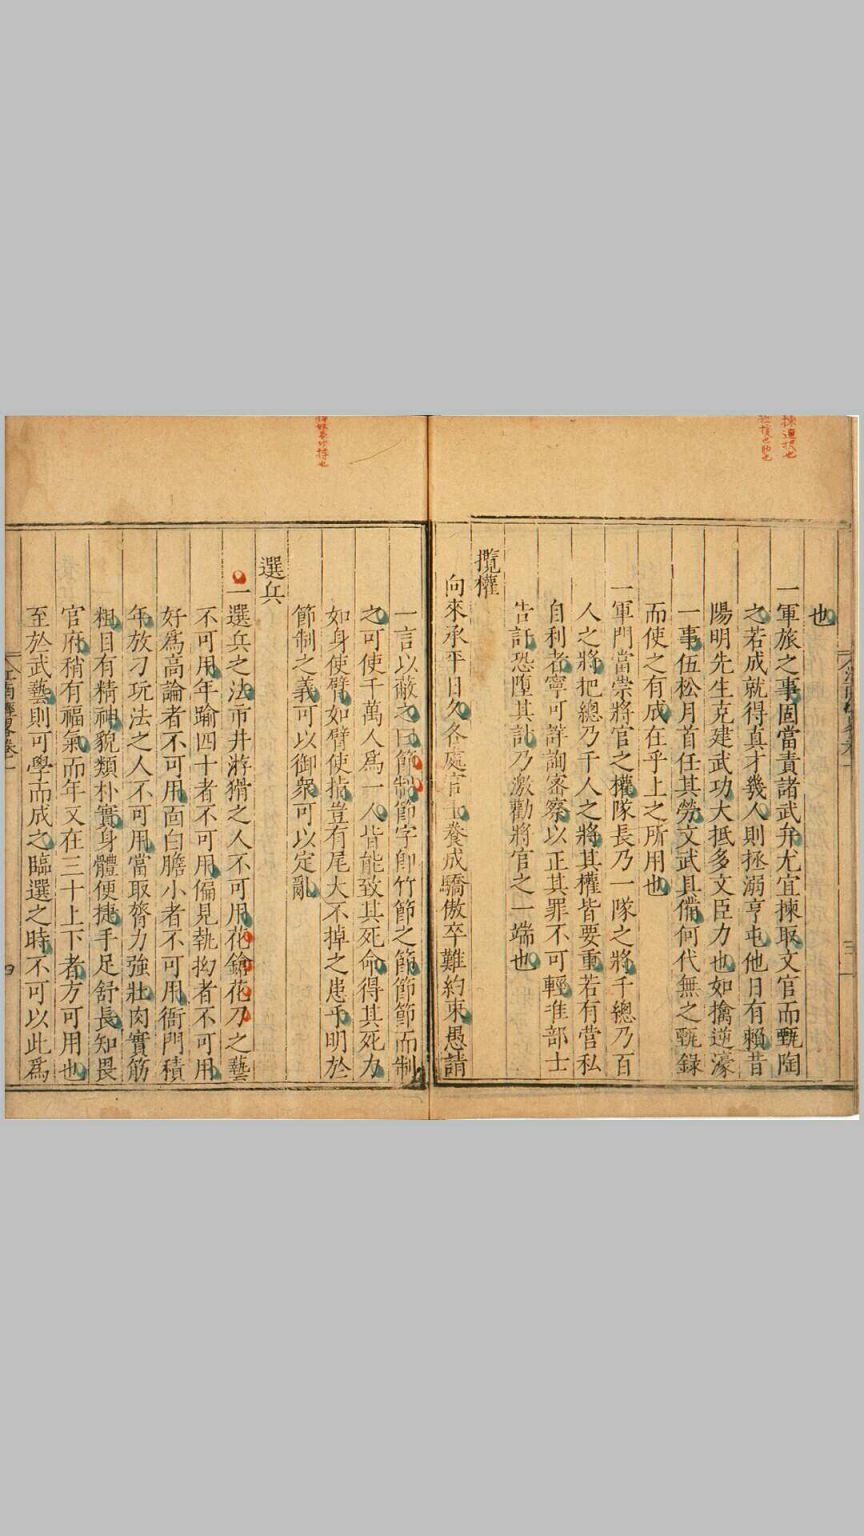 也
一軍旅之事固當責諸武弁尤宜揀取文官而甄陶
之若成就得真才幾人則拯溺亨屯他日有賴昔
陽明先生克建武功大抵多文臣力也如擒逆濠
一事伍松月首任其勞文武具備何代無之甄錄
而使之有成在乎上之所用也
一軍門當崇將官之權隊長乃一隊之將千總乃百
人之將把總乃千人之將其權皆要重若有營私
自利者寧可詳詢密察以正其罪不可輕准部士
告訐恐墮其計乃激勸將官之一端也
攬權
向來承平日久各處官 養成驕傲卒難約束愚請
一言以蔽之曰節制節字即竹節之節節節而制
之可使千萬人爲一人皆能致其死命得其死力
如身使臂如臂使指豈有尾大不掉之患乎明於
節制之義可以御衆可以定亂
選兵
一選兵之法市井游猾之人不可用花鎗花刀之藝
不可用年踰四十者不可用偏見執拗者不可用
好爲高論者不可用面白膽小者不可用衙門積
年放刁玩法之人不可用當取膂力強壯肉實筋
粗目有精神貌類朴實身體便捷手足舒長知畏
官府稍有福氣而年又在三十上下者方可用也
至於武藝則可學而成之臨選之時不可以此爲
四